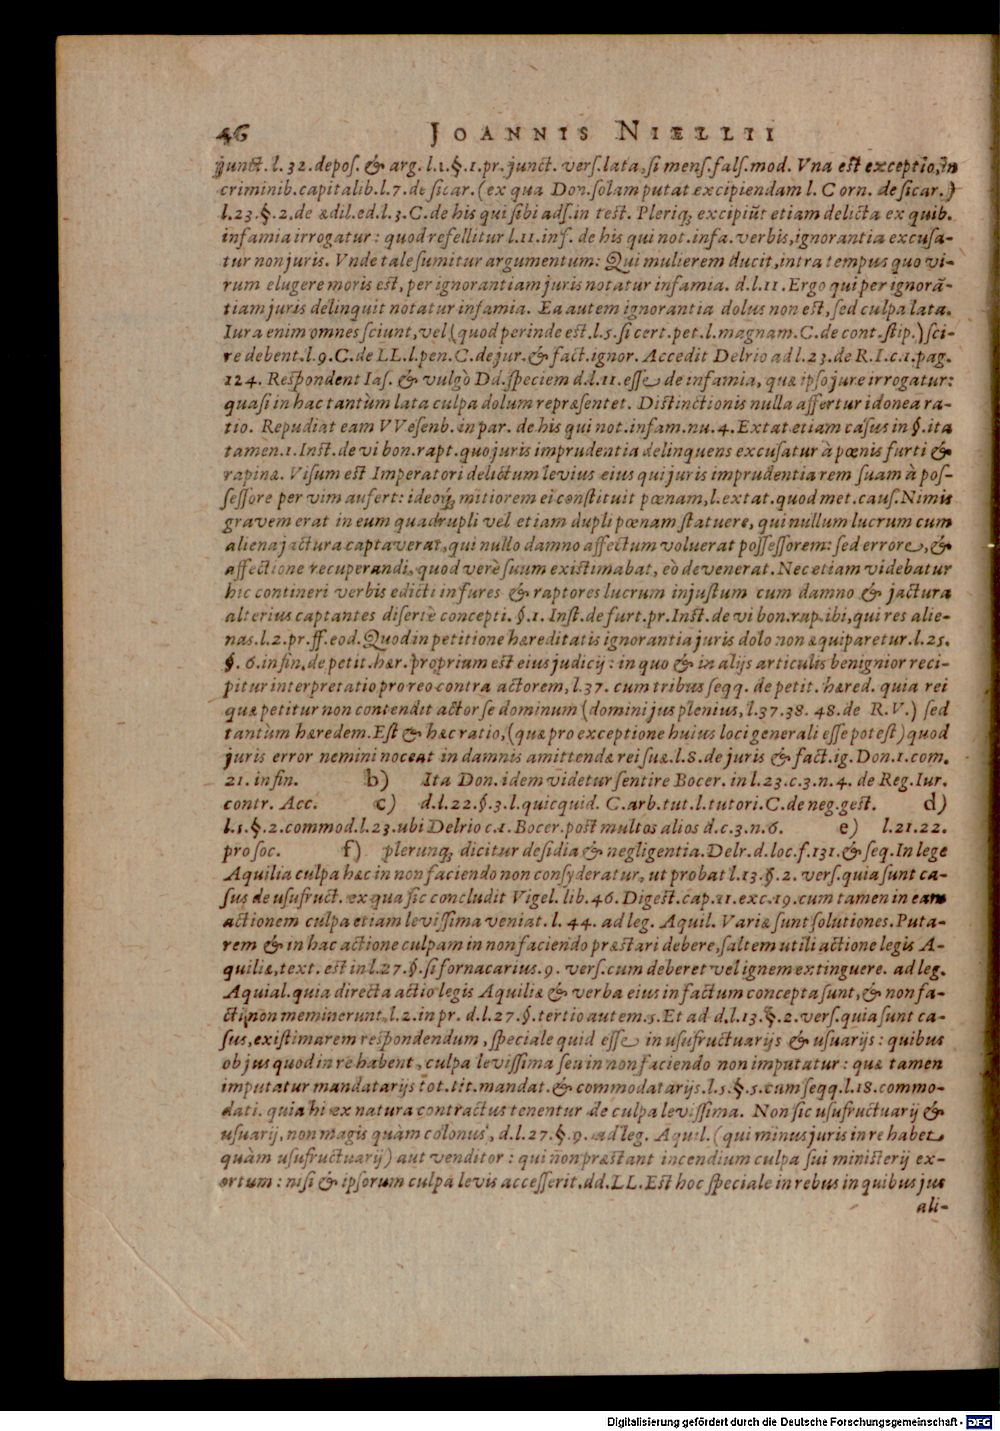 46 JOANNIS NIELLII
junct. l. 32. depos. & arg. l. 1. §. 1. pr. junct. vers. lata, si mens. fals. mod. Vna est exceptio, in
criminib. capitalib. l. 7. de sicar. (ex qua Don. solam putat excipiendam l. Corn. de sicar.)
l. 23. §. 2. de ædil. ed. l. 3. C. de his qui sibi ads. in test. Pleriq; excipiũt etiam delicta ex quib.
infamia irrogatur: quod refellitur l. 11. inf. de his qui not. infa. verbis, ignorantia excusa-
tur non juris. Vnde tale sumitur argumentum: Qui mulierem ducit, intra tempus quo vi-
rum elugere moris est, per ignorantiam juris notatur infamia. d. l. 11. Ergo qui per ignorã-
tiam juris delinquit notatur infamia. Ea autem ignorantia dolus non est, sed culpa lata.
Iura enim omnes sciunt, vel (quod perinde est. l. 5. si cert. pet. l. magnam. C. de cont. stip.) sci-
re debent. l. 9. C. de LL. l. pen. C. de jur. & fact. ignor. Accedit Delrio ad l. 23. de R. I. c. 1. pag.
124. Respondent Ias. & vulgò Dd. speciem d. l. 11. esse de infamia, quæ ipso jure irrogatur:
quasi in hac tantùm lata culpa dolum repræsentet. Distinctionis nulla affertur idonea ra-
tio. Repudiat eam VVesenb. in par. de his qui not. infam. nu. 4. Extat etiam casus in §. ita
tamen. 1. Inst. de vi bon. rapt. quo juris imprudentia delinquens excusatur à pœnis furti &
rapinæ. Visum est Imperatori delictum levius eius qui juris imprudentia rem suam à pos-
sessore per vim aufert: ideoq; mitiorem ei constituit pœnam, l. extat. quod met. caus. Nimis
gravem erat in eum quadrupli vel etiam dupli pœnam statuere, qui nullum lucrum cum
aliena jactura captaverat, qui nullo damno affectum voluerat possessorem: sed errore, &
affectione recuperandi, quod verè suum existimabat, eò devenerat. Nec etiam videbatur
hic contineri verbis edicti in fures & raptores lucrum injustum cum damno & jactura
alterius captantes disertè concepti. §. 1. Inst. de furt. pr. Inst. de vi bon. rap. ibi, qui res alie-
nas. l. 2. pr. ff. eod. Quod in petitione hæreditatis ignorantia juris dolo non æquiparetur. l. 25.
§. 6. in fin. de petit. hær. proprium est eius judicij: in quo & in alijs articulis benignior reci-
pitur interpretatio pro reo contra actorem, l. 37. cum tribus seqq. de petit. hæred. quia rei
quæ petitur non contendit actor se dominum (domini jus plenius, l. 37. 38. 48. de R. V.) sed
tantùm hæredem. Est & hæc ratio, (quæ pro exceptione huius loci generali esse potest) quod
juris error nemini noceat in damnis amittendæ rei suæ. l. 8. de juris & fact. ig. Don. 1. com.
21. in fin. b) Ita Don. idem videtur sentire Bocer. in l. 23. c. 3. n. 4. de Reg. Iur.
contr. Acc. c) d. l. 22. §. 3. l. quicquid. C. arb. tut. l. tutori. C. de neg. gest. d)
l. 5. §. 2. commod. l. 23. ubi Delrio c. 1. Bocer. post multos alios d. c. 3. n. 6. e) l. 21. 22.
pro soc. f) plerunq; dicitur desidia & negligentia. Delr. d. loc. f. 131. & seq. In lege
Aquilia culpa hæc in non faciendo non consyderatur, ut probat l. 13. §. 2. vers. quia sunt ca-
sus de usufruct. ex qua sic concludit Vigel. lib. 46. Digest. cap. 21. exc. 19. cum tamen in eam
actionem culpa etiam levissima veniat. l. 44. ad leg. Aquil. Variæ sunt solutiones. Puta-
rem & in hac actione culpam in non faciendo præstari debere, saltem utili actione legis A-
quiliæ, text. est in l. 27. §. si fornacarius. 9. vers. cum deberet vel ignem extinguere. ad leg.
Aquial. quia directa actio legis Aquiliæ & verba eius in factum concepta sunt, & non fa-
cti non meminerunt, l. 2. in pr. d. l. 27. §. tertio autem. 5. Et ad d. l. 13. §. 2. vers. quia sunt ca-
sus, existimarem respondendum, speciale quid esse in usufructuarijs & usuarijs: quibus
ob jus quod in re habent, culpa levissima seu in non faciendo non imputatur: quæ tamen
imputatur mandatarijs tot. tit. mandat. & commodatarijs. l. 5. §. 5. cum seqq. l. 18. commo-
dati. quia hi ex natura contractus tenentur de culpa levissima. Non sic usufructuarij &
usuarij, non magis quàm colonus, d. l. 27. §. 9. ad leg. Aquil. (qui minus juris in re habet
quàm usufructuarij) aut venditor: qui non præstant incendium culpa sui ministerij ex-
ortum: nisi & ipsorum culpa levis accesserit. dd. LL. Est hoc speciale in rebus in quibus jus
ali-
Digitalisierung gefördert durch die Deutsche Forschungsgemeinschaft - DFG